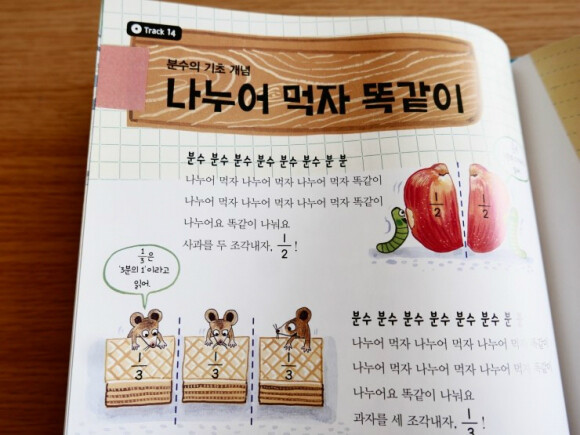 Track 14
분수의 기초 개념
나누어 먹자 똑같이
분수 분수 분수 분수 분수 분수 분
나누어 먹자 나누어 먹자 나누어 먹자 똑같이
나누어 먹자 나누어 먹자 나누어 먹자 똑같이
나누어요 똑같이 나눠요
사과를 두 조각내자, 1/2 !
1/2
1/2
1/3은
'3분의 1'이라고
읽어.
1/3
1/3
1/3
분수 분수 분수 분수 분수 분수 분
나누어 먹자 나누어 먹자 나누어 먹자 똑같이
나누어 먹자 나누어 먹자 나누어 먹자 똑같이
나누어요 똑같이 나눠요
과자를 세 조각내자, 1/3 !